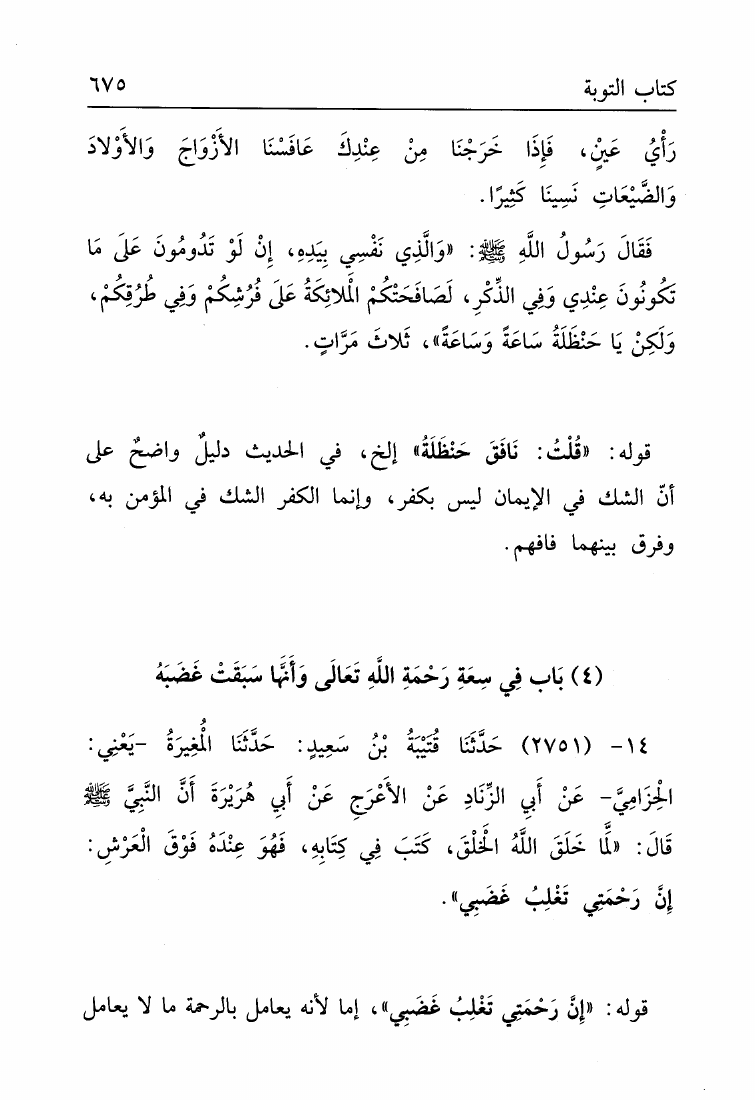 كتاب التوبة ٦٧٥
رَأْيُ عَيْنٍ، فَإِذَا خَرَجْنَا مِنْ عِنْدِكَ عَافَسْنَا الأَزْوَاجَ وَالأَوْلادَ
وَالضَّيْعَاتِ نَسِينَا كَثِيرًا.
فَقَالَ رَسُولُ اللَّهِ ﷺ: «وَالَّذِي نَفْسِي بِيَدِهِ، إِنْ لَوْ تَدُومُونَ عَلَى مَا
تَكُونُونَ عِنْدِي وَفِي الذِّكْرِ، لَصَافَحَتْكُمْ الْمَلائِكَةُ عَلَى فُرُشِكُمْ وَفِي طُرُقِكُمْ،
وَلَكِنْ يَا حَنْظَلَةُ سَاعَةً وَسَاعَةً»، ثَلاثَ مَرَّاتٍ.
قوله: «قُلْتُ: نَافَقَ حَنْظَلَةُ» إلخ، في الحديث دليلٌ واضحٌ على
أنّ الشك في الإيمان ليس بكفر، وإنما الكفر الشك في المؤمن به،
وفرق بينهما فافهم.
(٤) بَاب فِي سِعَةِ رَحْمَةِ اللَّهِ تَعَالَى وَأَنَّهَا سَبَقَتْ غَضَبَهُ
١٤- (٢٧٥١) حَدَّثَنَا قُتَيْبَةُ بْنُ سَعِيدٍ: حَدَّثَنَا الْمُغِيرَةُ -يَعْنِي:
الْحِزَامِيَّ- عَنْ أَبِي الزِّنَادِ عَنْ الأَعْرَجِ عَنْ أَبِي هُرَيْرَةَ أَنَّ النَّبِيَّ ﷺ
قَالَ: «لَمَّا خَلَقَ اللَّهُ الْخَلْقَ، كَتَبَ فِي كِتَابِهِ، فَهُوَ عِنْدَهُ فَوْقَ الْعَرْشِ:
إِنَّ رَحْمَتِي تَغْلِبُ غَضَبِي».
قوله: «إِنَّ رَحْمَتِي تَغْلِبُ غَضَبِي»، إما لأنه يعامل بالرحمة ما لا يعامل